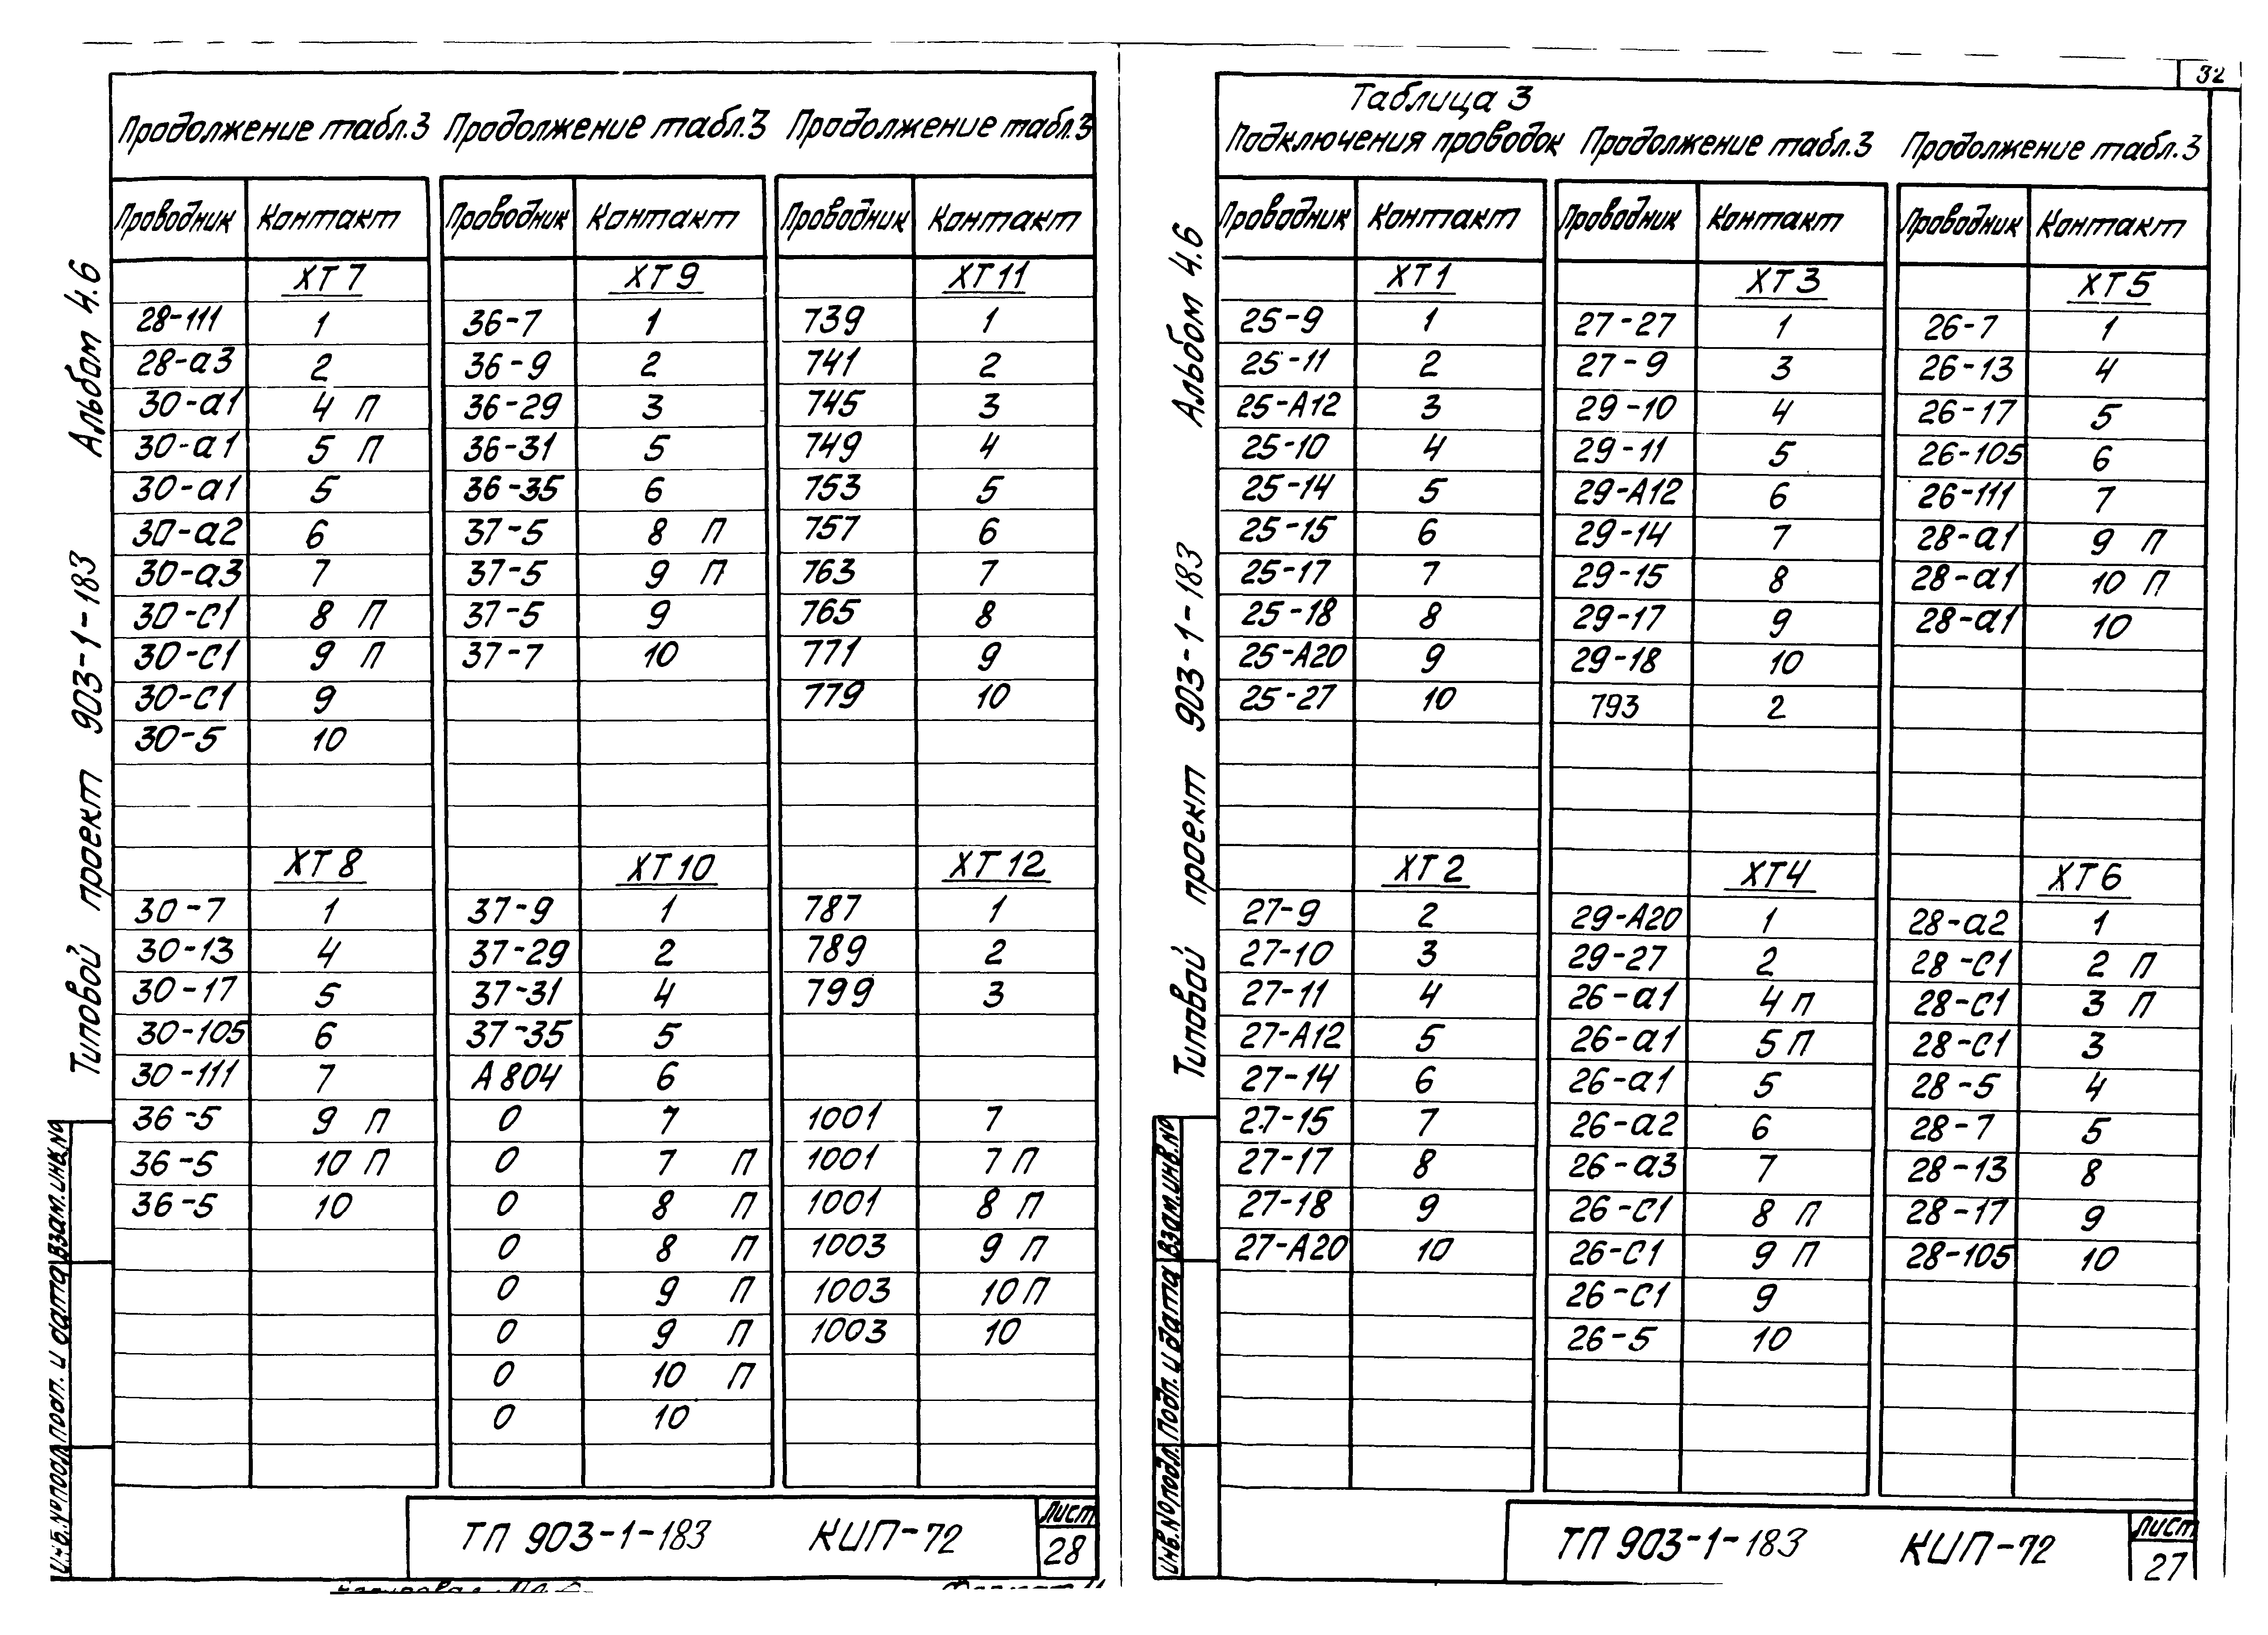 Продолжение табл.3 Продолжение табл.3 Продолжение табл.3
Проводник Контакт Проводник Контакт Проводник Контакт
ХТ7 ХТ9 ХТ11
28-111 1 36-7 1 739 1
28-а3 2 36-9 2 741 2
30-а1 4 П 36-29 3 745 3
30-а1 5 П 36-31 5 749 4
30-а1 5 36-35 6 753 5
30-а2 6 37-5 8 П 757 6
30-а3 7 37-5 9 П 763 7
30-С1 8 П 37-5 9 765 8
30-С1 9 П 37-7 10 771 9
30-С1 9 779 10
30-5 10
ХТ8 ХТ10 ХТ12
30-7 1 37-9 1 787 1
30-13 4 37-29 2 789 2
30-17 5 37-31 4 799 3
30-105 6 37-35 5
30-111 7 А804 6
36-5 9 П 0 7 1001 7
36-5 10 П 0 7 П 1001 7 П
36-5 10 0 8 П 1001 8 П
0 8 П 1003 9 П
0 9 П 1003 10 П
0 9 П 1003 10
0 10 П
0 10
Типовой проект 903-1-183 Альбом 4.6
Инв.№подл. Подп. и дата Взам.инв.№
ТП 903-1-183 КИП-72
Лист
28
32
Таблица 3
Подключения проводок Продолжение табл.3 Продолжение табл.3
Проводник Контакт Проводник Контакт Проводник Контакт
ХТ1 ХТ3 ХТ5
25-9 1 27-27 1 26-7 1
25-11 2 27-9 3 26-13 4
25-А12 3 29-10 4 26-17 5
25-10 4 29-11 5 26-105 6
25-14 5 29-А12 6 26-111 7
25-15 6 29-14 7 28-а1 9 П
25-17 7 29-15 8 28-а1 10 П
25-18 8 29-17 9 28-а1 10
25-А20 9 29-18 10
25-27 10 793 2
ХТ2 ХТ4 ХТ6
27-9 2 29-А20 1 28-а2 1
27-10 3 29-27 2 28-С1 2 П
27-11 4 26-а1 4 П 28-С1 3 П
27-А12 5 26-а1 5 П 28-С1 3
27-14 6 26-а1 5 28-5 4
27-15 7 26-а2 6 28-7 5
27-17 8 26-а3 7 28-13 8
27-18 9 26-С1 8 П 28-17 9
27-А20 10 26-С1 9 П 28-105 10
26-С1 9
26-5 10
Типовой проект 903-1-183 Альбом 4.6
Инв.№подл. Подп. и дата Взам.инв.№
ТП 903-1-183 КИП-72
Лист
27